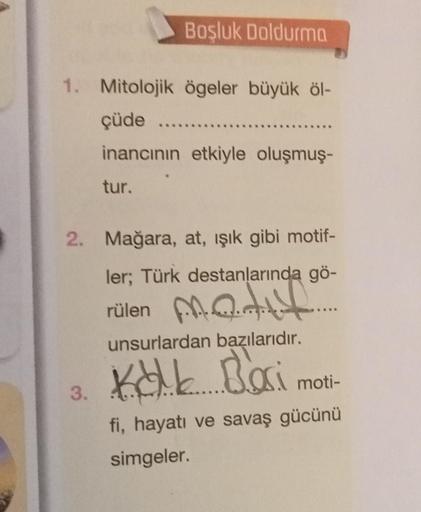 Boşluk Doldurma
1. Mitolojik ögeler büyük öl-
çüde ..............................
inancının etkiyle oluşmuş-
tur.
2. Mağara, at, ışık gibi motif-
ler; Türk destanlarında gö-
rülen motif
unsurlardan bazılarıdır.
3. Kölk Böri moti-
fi, hayatı ve savaş gücünü
simgeler.